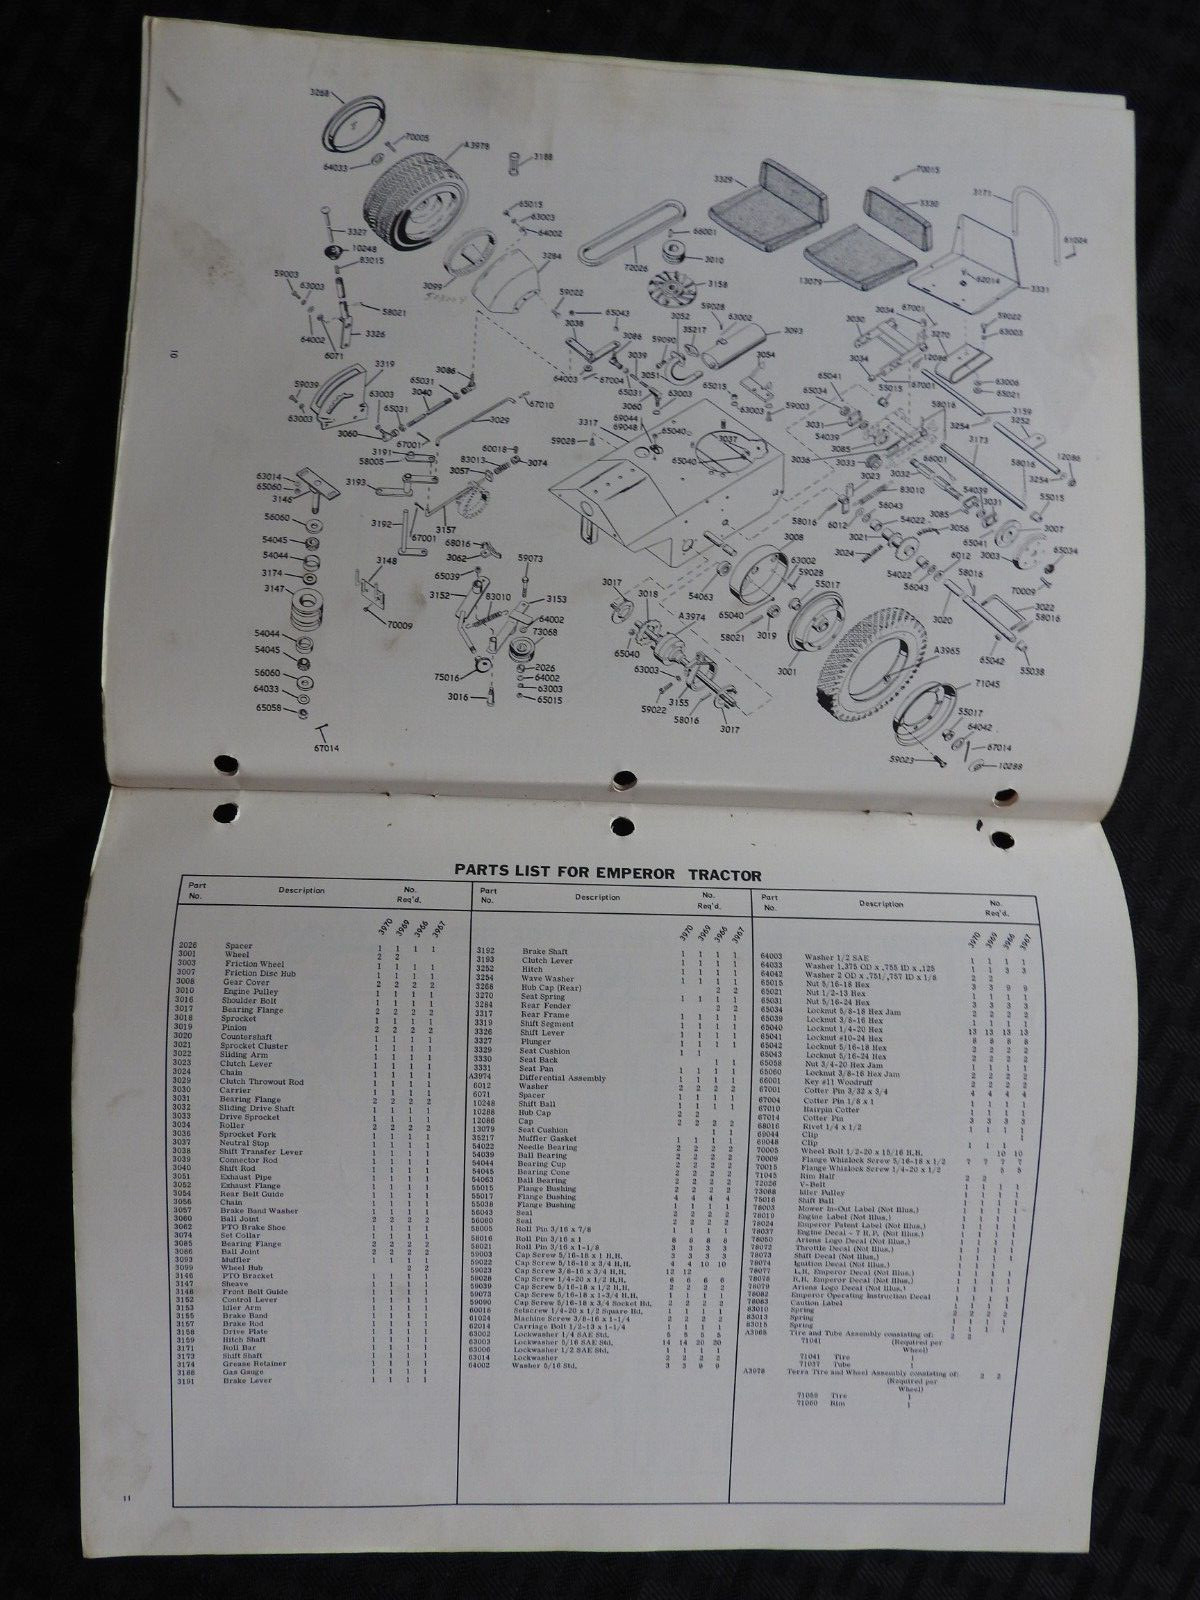 3268
70005
A3978
64033
3188
65015
63003
64002
3284
3327
10248
83015
59003
63003
58021
64002
6071
3326
3099
72026
66001
3010
3158
3329
70015
3330
3171
61004
62014
3331
13079
59022
65043
3038
3086
3039
64003
67004
65031
3060
63003
3052
59028
63002
35217
3093
59090
3051
65015
3054
63003
59003
3034
67001
3030
3270
12086
3034
67001
55015
65041
65034
59022
63003
63006
65021
3159
3252
3319
59039
63003
63003
65031
3060
3040
65031
3086
67010
3029
67001
3191
58005
3193
3192
67001
60018
83013
3074
3057
3157
68016
3062
59028
3317
69044
69048
65040
65040
3037
3031
54039
3085
3036
3033
58016
3254
3173
66001
3032
3023
83010
58016
54039
3031
3254
12086
55015
63014
65060
3146
56060
54045
54044
3174
3147
54044
54045
56060
64033
65058
67014
3148
70009
65039
3152
83010
59073
3153
64002
73068
2026
64002
63003
65015
75016
3016
3017
3018
54063
A3974
65040
63003
59022
3155
58016
3017
58016
3008
63002
59028
55017
65040
58021
3019
3001
6012
56043
54022
3021
3024
3056
3085
65041
3003
3007
65034
6012
54022
56043
58016
70009
3022
58016
3020
65042
55038
A3965
71045
55017
64042
67014
59023
10288
10
PARTS LIST FOR EMPEROR TRACTOR
Part No. Description No. Req'd.
3970 3969 3966 3967
2026 Spacer 1 1 1 1
3001 Wheel 2 2
3003 Friction Wheel 1 1 1 1
3007 Friction Disc Hub 1 1 1 1
3008 Gear Cover 2 2 2 2
3010 Engine Pulley 1 1 1 1
3016 Shoulder Bolt 1 1 1 1
3017 Bearing Flange 2 2 2 2
3018 Sprocket 1 1 1 1
3019 Pinion 2 2 2 2
3020 Countershaft 1 1 1 1
3021 Sprocket Cluster 1 1 1 1
3022 Sliding Arm 1 1 1 1
3023 Clutch Lever 1 1 1 1
3024 Chain 1 1 1 1
3029 Clutch Throwout Rod 1 1 1 1
3030 Carrier 1 1 1 1
3031 Bearing Flange 2 2 2 2
3032 Sliding Drive Shaft 1 1 1 1
3033 Drive Sprocket 1 1 1 1
3034 Roller 2 2 2 2
3036 Sprocket Fork 1 1 1 1
3037 Neutral Stop 1 1 1 1
3038 Shift Transfer Lever 1 1 1 1
3039 Connector Rod 1 1 1 1
3040 Shift Rod 1 1 1 1
3051 Exhaust Pipe 1 1 1 1
3052 Exhaust Flange 1 1 1 1
3054 Rear Belt Guide 1 1 1 1
3056 Chain 1 1 1 1
3057 Brake Band Washer 1 1 1 1
3060 Ball Joint 2 2 2 2
3062 PTO Brake Shoe 1 1 1 1
3074 Set Collar 1 1 1 1
3085 Bearing Flange 2 2 2 2
3086 Ball Joint 2 2 2 2
3093 Muffler 1 1 1 1
3099 Wheel Hub 2 2
3146 PTO Bracket 1 1 1 1
3147 Sheave 1 1 1 1
3148 Front Belt Guide 1 1 1 1
3152 Control Lever 1 1 1 1
3153 Idler Arm 1 1 1 1
3155 Brake Band 1 1 1 1
3157 Brake Rod 1 1 1 1
3158 Drive Plate 1 1 1 1
3159 Hitch Shaft 1 1 1 1
3171 Roll Bar 1 1 1 1
3173 Shift Shaft 1 1 1 1
3174 Grease Retainer 1 1 1 1
3188 Gas Gauge 1 1 1 1
3191 Brake Lever 1 1 1 1
Part No. Description No. Req'd.
3970 3969 3966 3967
3192 Brake Shaft 1 1 1 1
3193 Clutch Lever 1 1 1 1
3252 Hitch 1 1 1 1
3254 Wave Washer 1 1 1 1
3268 Hub Cap (Rear) 2 2
3270 Seat Spring 1 1 1 1
3284 Rear Fender 2 2
3317 Rear Frame 1 1 1 1
3319 Shift Segment 1 1 1 1
3326 Shift Lever 1 1 1 1
3327 Plunger 1 1 1 1
3329 Seat Cushion 1 1
3330 Seat Back 1 1
3331 Seat Pan 1 1 1 1
A3974 Differential Assembly 1 1 1 1
6012 Washer 2 2 2 2
6071 Spacer 1 1 1 1
10248 Shift Ball 1 1 1 1
10288 Hub Cap 2 2
12086 Cap 2 2 2 2
13079 Seat Cushion 1 1
35217 Muffler Gasket 1 1 1 1
54022 Needle Bearing 2 2 2 2
54039 Ball Bearing 2 2 2 2
54044 Bearing Cup 2 2 2 2
54045 Bearing Cone 2 2 2 2
54063 Ball Bearing 2 2 2 2
55015 Flange Bushing 2 2 2 2
55017 Flange Bushing 4 4 4 4
55038 Flange Bushing
56043 Seal 2 2 2 2
56060 Seal 2 2 2 2
58005 Roll Pin 3/16 x 7/8 1 1 1 1
58016 Roll Pin 3/16 x 1 8 8 8 8
58021 Roll Pin 3/16 x 1-1/8 3 3 3 3
59003 Cap Screw 5/16-18 x 1 H.H. 3 3 3 3
59022 Cap Screw 5/16-18 x 3/4 H.H. 4 4 10 10
59023 Cap Screw 3/8-16 x 3/4 H.H. 12 12
59028 Cap Screw 1/4-20 x 1/2 H.H. 6 6 6 6
59039 Cap Screw 5/16-18 x 1/2 H.H. 2 2 2 2
59073 Cap Screw 5/16-18 x 1-3/4 H.H. 1 1 1 1
59090 Cap Screw 5/16-18 x 3/4 Socket Hd. 2 2 2 2
60018 Setscrew 1/4-20 x 1/2 Square Hd. 1 1 1 1
61024 Machine Screw 3/8-16 x 1-1/4 2 2 2 2
62014 Carriage Bolt 1/2-13 x 1-1/4 1 1 1 1
63002 Lockwasher 1/4 SAE Std. 5 5 5 5
63003 Lockwasher 5/16 SAE Std. 14 14 20 20
63006 Lockwasher 1/2 SAE Std. 1 1 1 1
63014 Lockwasher 2 2 2 2
64002 Washer 5/16 Std. 3 3 9 9
Part No. Description No. Req'd.
3970 3969 3966 3967
64003 Washer 1/2 SAE 1 1 1 1
64033 Washer 1.375 OD x .755 ID x .125 1 1 3 3
64042 Washer 2 OD x .751/.757 ID x 1/8 2 2
65015 Nut 5/16-18 Hex 3 3 9 9
65021 Nut 1/2-13 Hex 1 1 1 1
65031 Nut 5/16-24 Hex 2 2 2 2
65034 Locknut 5/8-18 Hex Jam 2 2 2 2
65039 Locknut 3/8-16 Hex 1 1 1 1
65040 Locknut 1/4-20 Hex 13 13 13 13
65041 Locknut #10-24 Hex 8 8 8 8
65042 Locknut 5/16-18 Hex 2 2 2 2
65043 Locknut 5/16-24 Hex 2 2 2 2
65058 Nut 3/4-20 Hex Jam 1 1 1 1
65060 Locknut 3/8-16 Hex Jam 2 2 2 2
66001 Key #11 Woodruff 2 2 2 2
67001 Cotter Pin 3/32 x 3/4 4 4 4 4
67004 Cotter Pin 1/8 x 1 1 1 1 1
67010 Hairpin Cotter 1 1 1 1
67014 Cotter Pin 3 3 3 3
68016 Rivet 1/4 x 1/2 1 1 1 1
69044 Clip 1
69048 Clip 1 1 1
70005 Wheel Bolt 1/2-20 x 15/16 H.H. 10 10
70009 Flange Whizlock Screw 5/16-18 x 1/2 7 7 7 7
70015 Flange Whizlock Screw 1/4-20 x 1/2 5 5
71045 Rim Half 2 2
72026 V-Belt 1 1 1 1
73068 Idler Pulley 1 1 1 1
75016 Shift Ball 1 1 1 1
78003 Mower In-Out Label (Not Illus.) 1 1 1 1
78010 Engine Label (Not Illus.) 1 1 1 1
78024 Emperor Patent Label (Not Illus.) 1 1 1 1
78037 Engine Decal - 7 H.P. (Not Illus.) 1 1 1 1
78050 Ariens Logo Decal (Not Illus.) 1 1 1 1
78072 Throttle Decal (Not Illus.) 1 1 1 1
78073 Shift Decal (Not Illus.) 1 1 1 1
78074 Ignition Decal (Not Illus.) 1 1 1 1
78077 L.H. Emperor Decal (Not Illus.) 1 1 1 1
78078 R.H. Emperor Decal (Not Illus.) 1 1 1 1
78079 Ariens Logo Decal (Not Illus.) 1 1 1 1
78082 Emperor Operating Instruction Decal 1 1 1 1
78083 Caution Label 1 1 1 1
83010 Spring 2 2 2 2
83013 Spring 1 1 1 1
83015 Spring 1 1 1 1
A3965 Tire and Tube Assembly consisting of: 2 2
71041 (Required per Wheel)
71041 Tire 1
71037 Tube 1
A3978 Terra Tire and Wheel Assembly consisting of: 2 2
(Required per
Wheel)
71059 Tire 1
71060 Rim 1
11